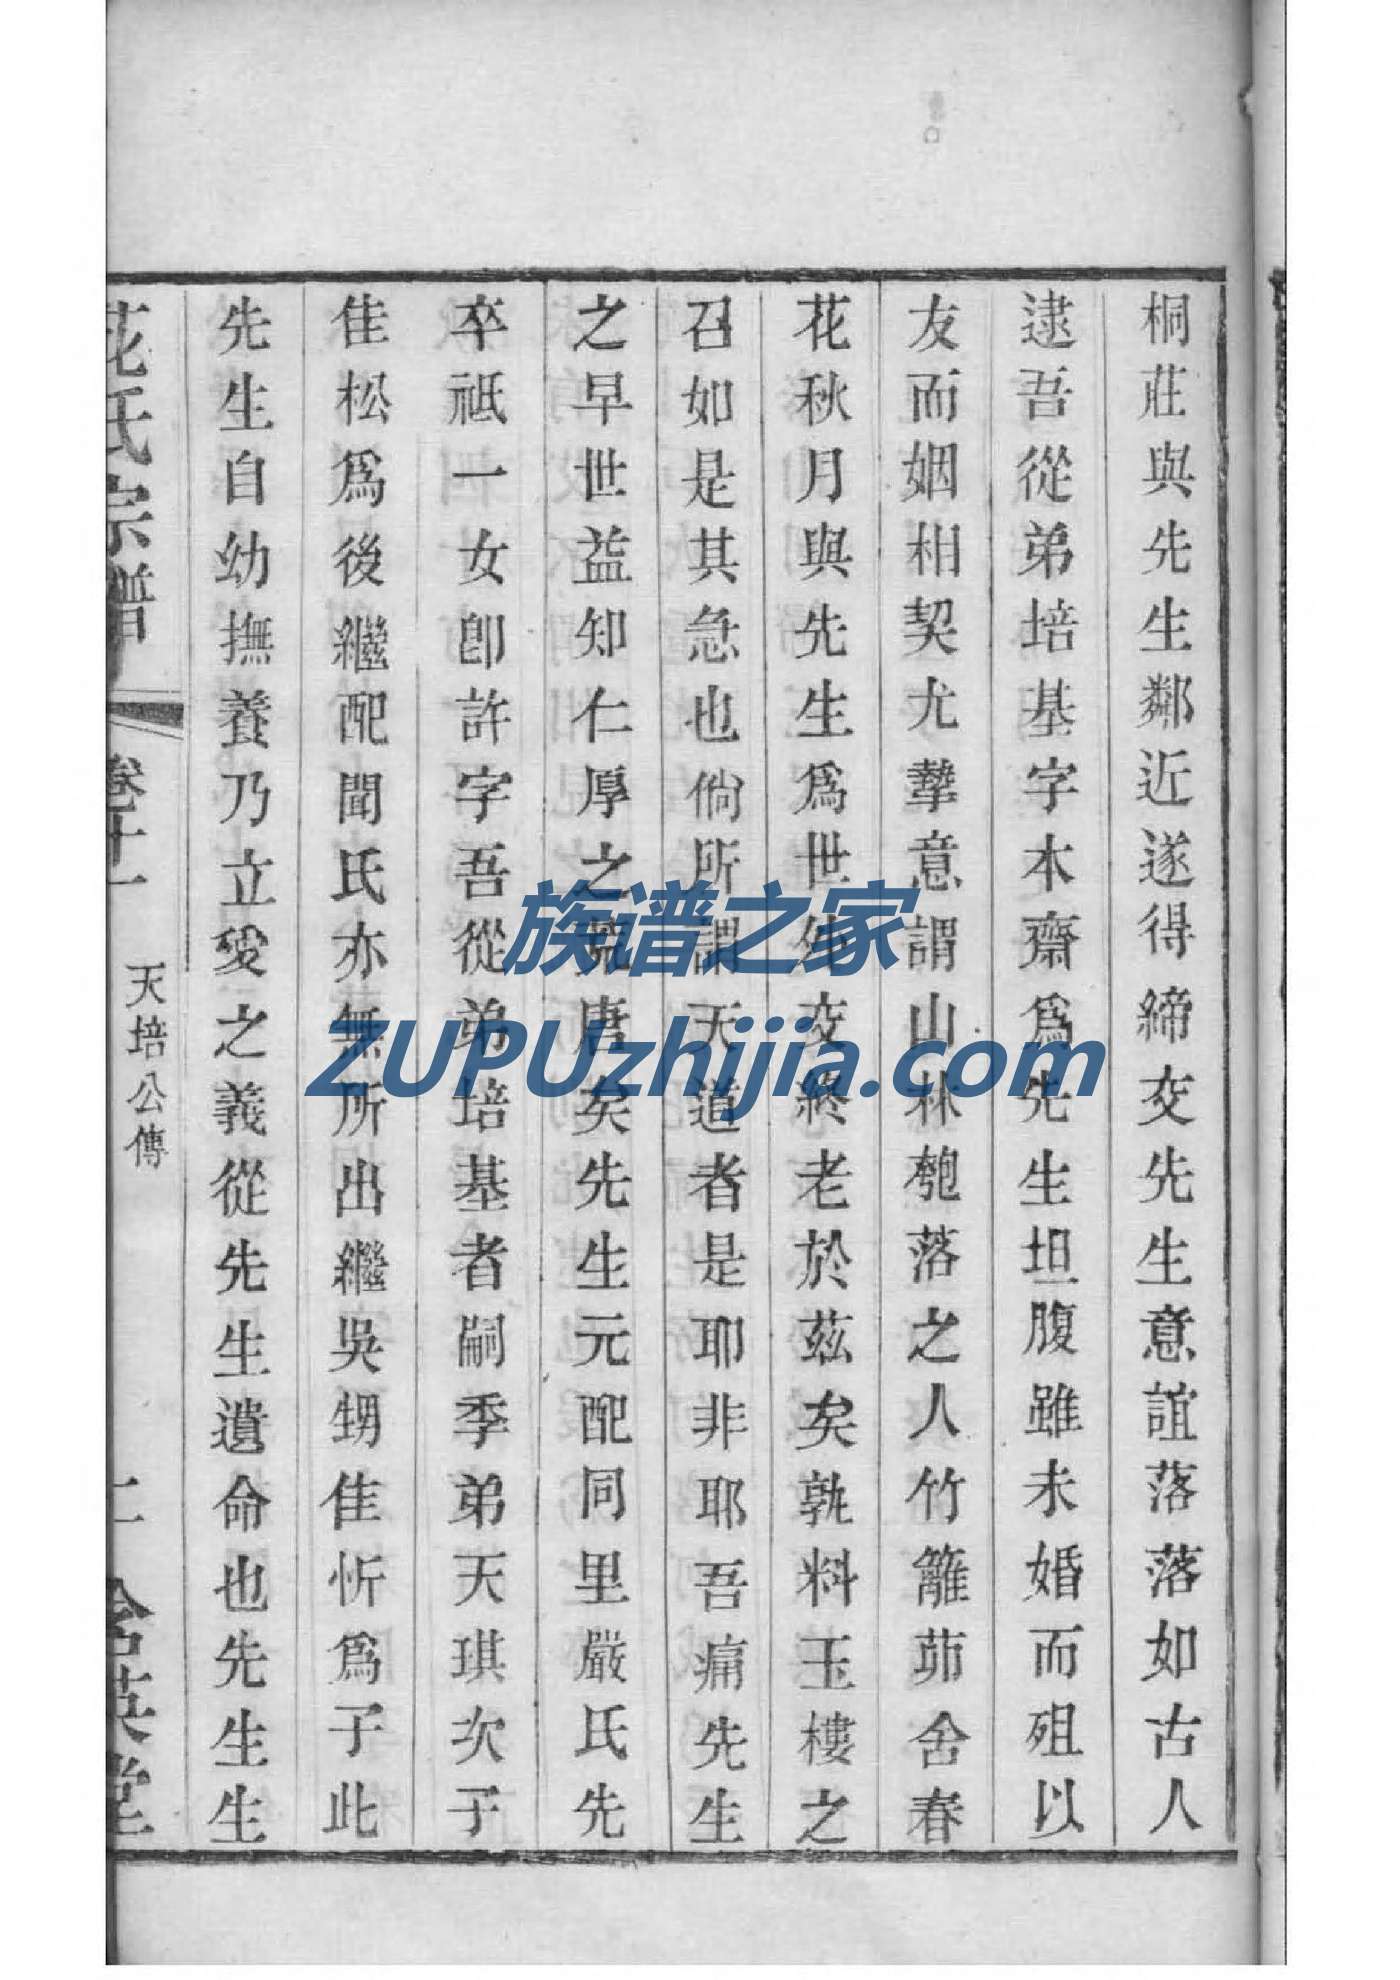 桐莊與先生鄰近遂得締交先生意誼落落如古人
逮吾從弟培基字本齋爲先生坦腹雖未婚而殂以
友而姻相契尤摯意謂山林匏落之人竹籬茆舍春
花秋月與先生爲世外交終老於茲矣孰料玉樓之
召如是其急也倘所謂天道者是耶非耶吾痛先生
之早世益知仁厚之荒唐矣先生元配同里嚴氏先
卒祇一女卽許字吾從弟培基者嗣季弟天琪次子
佳松爲後繼配聞氏亦無所出繼吳甥佳忻爲子此
先生自幼撫養乃立愛之義從先生遺命也先生生
花氏宗譜 卷十一 天培公傳 二 含英堂
族谱之家
ZUPUzhijia.com